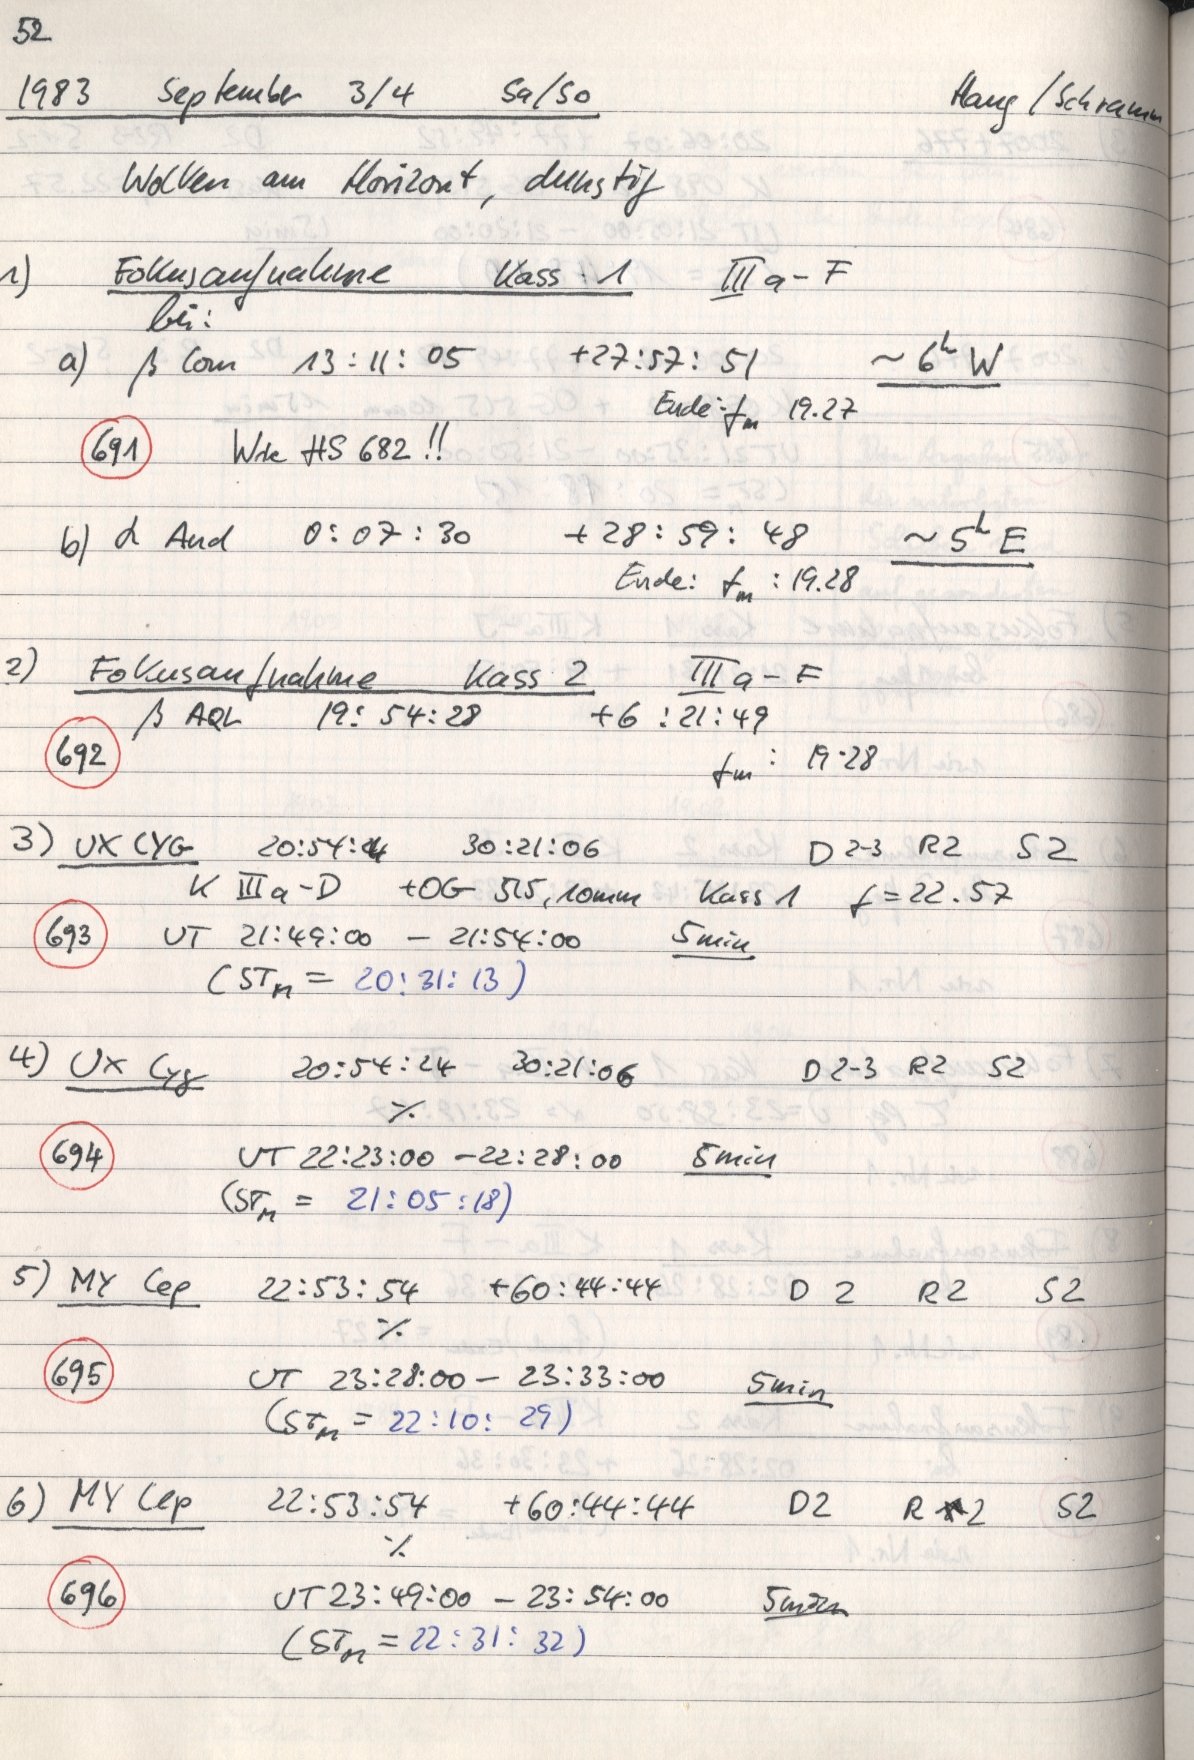 52
1983 September 3/4 Sa/So Haug/Schramm
Wolken am Horizont, dunstig
1) Fokusaufnahme Kass 1 IIIa-F
bei:
a) β Com 13:11:05 +27:57:51 ~6h W
Ende: fm 19.27
691 Wie HS 682!!
b) α And 0:07:30 +28:59:48 ~5h E
Ende: fm: 19.28
2) Fokusaufnahme Kass 2 IIIa-F
β AQL 19:54:28 +6:21:49
692 fm: 19.28
3) UX CYG 20:54:24 30:21:06 D2-3 R2 S2
K IIIa-D +OG 515, 10mm Kass 1 f=22.57
693 UT 21:49:00 - 21:54:00 5min
(STm = 20:31:13)
4) UX Cyg 20:54:24 30:21:06 D2-3 R2 S2
٪
694 UT 22:23:00 - 22:28:00 5min
(STm = 21:05:18)
5) MY Cep 22:53:54 +60:44:44 D2 R2 S2
٪
695 UT 23:28:00 - 23:33:00 5min
(STm = 22:10:29)
6) MY Cep 22:53:54 +60:44:44 D2 R2 S2
٪
696 UT 23:49:00 - 23:54:00 5min
(STm = 22:31:32)